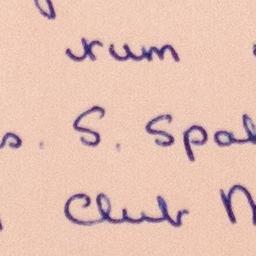 rum
s. S. Spal
Club N